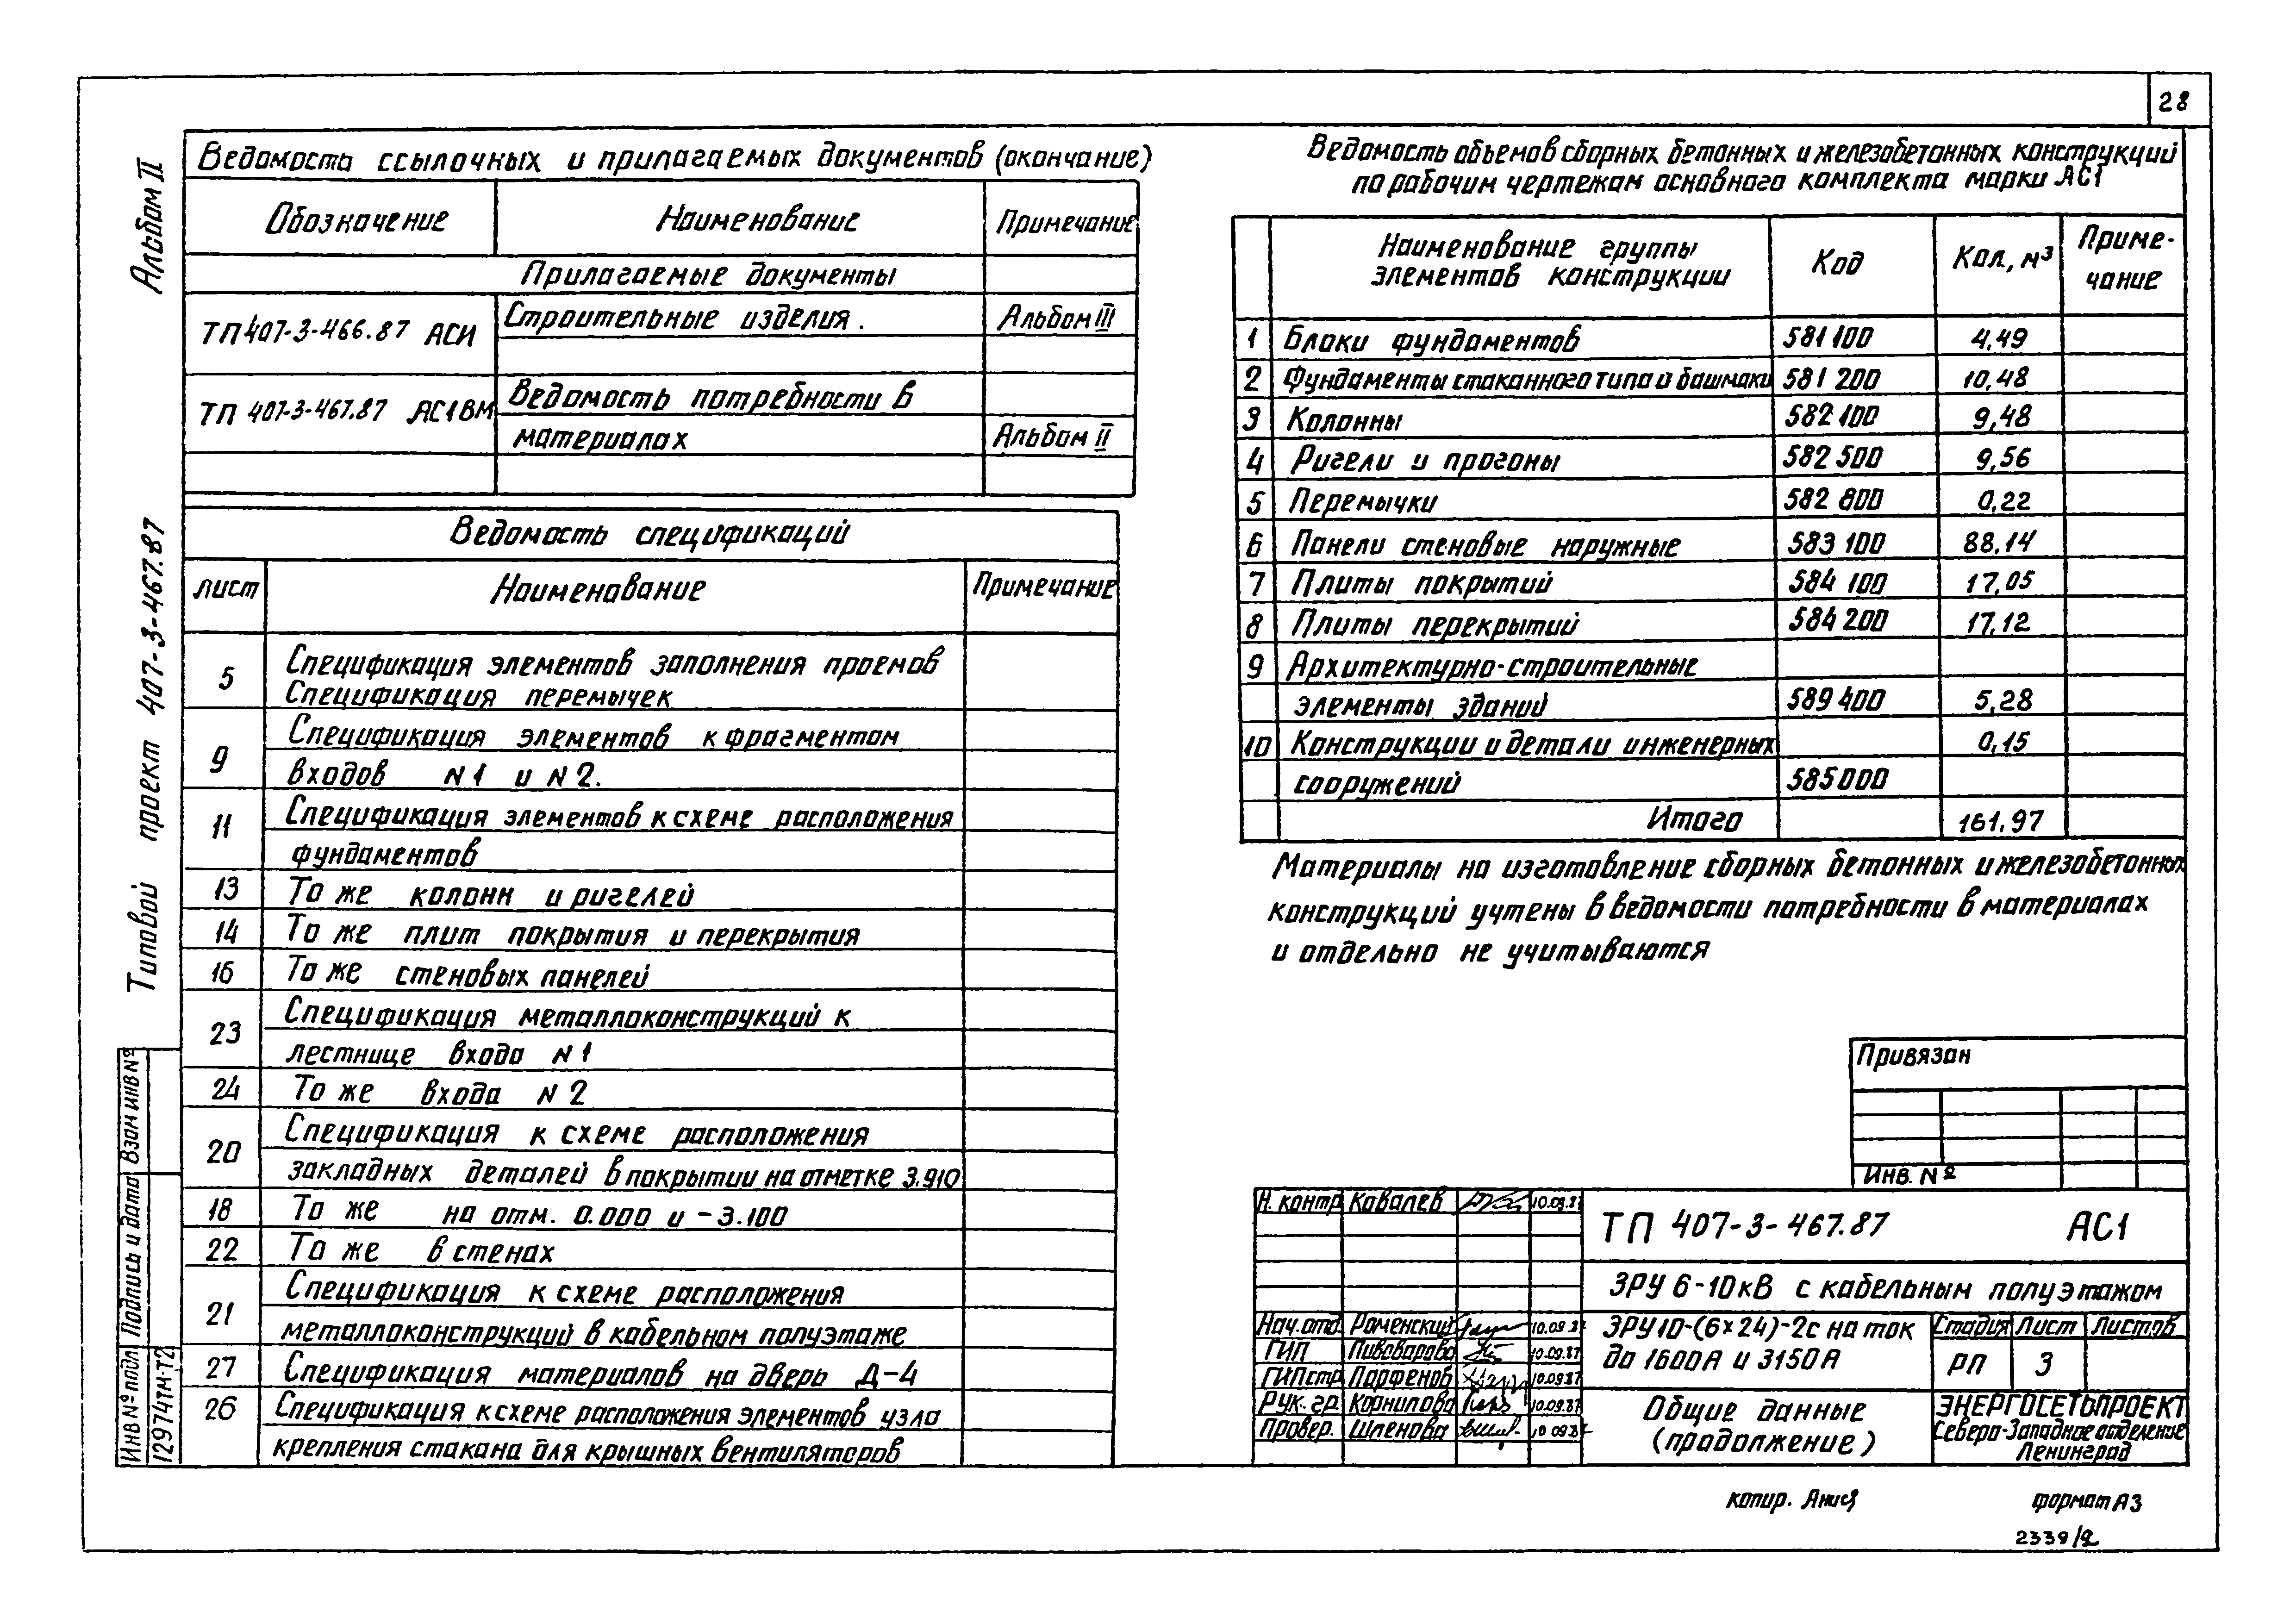 28
Альбом II
Типовой проект 407-3-467.87
Ведомость ссылочных и прилагаемых документов (окончание)
Обозначение Наименование Примечание
Прилагаемые документы
ТП 407-3-466.87 АСИ Строительные изделия. Альбом III
ТП 407-3-467.87 АС1 ВМ Ведомость потребности в
материалах Альбом II
Ведомость спецификаций
лист Наименование Примечание
5 Спецификация элементов заполнения проемов
Спецификация перемычек
9 Спецификация элементов к фрагментам
входов N1 и N2.
11 Спецификация элементов к схеме расположения
фундаментов
13 То же колонн и ригелей
14 То же плит покрытия и перекрытия
16 То же стеновых панелей
23 Спецификация металлоконструкций к
лестнице входа N1
24 То же входа N2
20 Спецификация к схеме расположения
закладных деталей в покрытии на отметке 3.910
18 То же на отм. 0.000 и -3.100
22 То же в стенах
21 Спецификация к схеме расположения
металлоконструкций в кабельном полуэтаже
27 Спецификация материалов на дверь Д-4
26 Спецификация к схеме расположения элементов узла
крепления стакана для крышных вентиляторов
Взам инв №
Подпись и дата
Инв № подл
12974тм-т2
Ведомость объемов сборных бетонных и железобетонных конструкций
по рабочим чертежам основного комплекта марки АС1
Наименование группы элементов конструкции Код Кол., м³ Примечание
1 Блоки фундаментов 581 100 4,49
2 Фундаменты стаканного типа и башмаки 581 200 10,48
3 Колонны 582 100 9,48
4 Ригели и прогоны 582 500 9,56
5 Перемычки 582 800 0,22
6 Панели стеновые наружные 583 100 88,14
7 Плиты покрытий 584 100 17,05
8 Плиты перекрытий 584 200 17,12
9 Архитектурно-строительные
элементы зданий 589 400 5,28
10 Конструкции и детали инженерных 0,15
сооружений 585 000
Итого 161,97
Материалы на изготовление сборных бетонных и железобетонных
конструкций учтены в ведомости потребности в материалах
и отдельно не учитываются
Привязан
Инв. №
Н. контр Ковалев 10.09.87
Нач. отд. Роменский 10.09.87
ГИП Пивоварова 10.09.87
ГИПстр Парфенов 10.09.87
Рук. гр. Корнилова 10.09.87
Провер. Шленова 10 09 87
ТП 407-3-467.87 АС1
ЗРУ 6-10кВ с кабельным полуэтажом
ЗРУ10-(6×24)-2с на ток
до 1600А и 3150А
Стадия Лист Листов
РП 3
Общие данные
(продолжение)
ЭНЕРГОСЕТЬПРОЕКТ
Северо-Западное отделение
Ленинград
копир. Анися
формат А3
2339/2